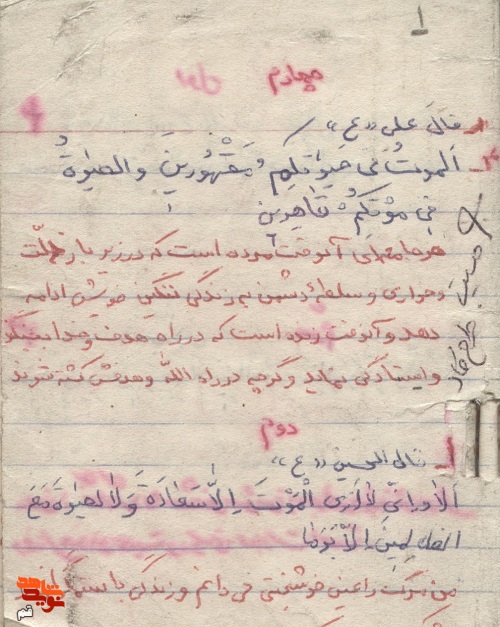 ۱
چهارم
قال علی «ع»
اَلموتُ فی حَیوٰتِکُم مَقْهُورینَ والحیٰوةُ
فی مَوْتِکُمْ قاهِرین
هر جامعه‌ای آنوقت مرده است که در زیر بار ذلّت
و خواری و سلطهٔ دشمن به زندگی ننگین خویش ادامه
دهد و آنوقت زنده است که در راه هدف و خدا بجنگد
و ایستادگی نماید و گرچه در راه الله و هدفش کشته شوند
دوم
قال الحسین «ع»
اَلا وَ اِنّی لا اَرَی الْمَوْتَ اِلاّ سَعادَةً وَلاَ الحیٰوةَ مَعَ
الظالِمینَ اِلاّ بَرَما
من مرگ را عین خوشبختی می دانم و زندگی با ستمگران
نوید شاهد
قم